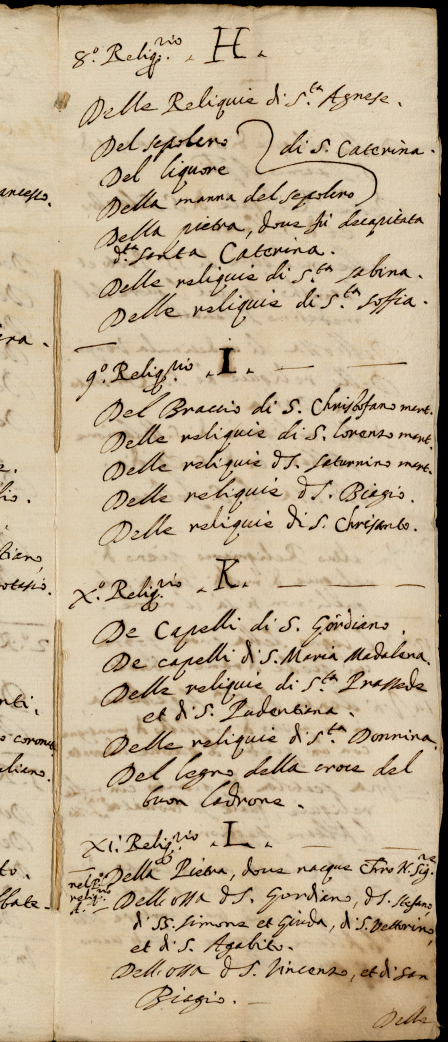 8.o Reliq.rio . H .
Delle Reliquie di S.ta Agnese.
Del sepolcro
Del liquore
di S. Caterina.
Della manna del sepolcro
Della pietra, doue fù decapitata
d.ta Santa Caterina.
Delle reliquie di S.ta Sabina.
Delle reliquie di S.ta Soffia.
9.o Reliq.rio . I .
Del Braccio di S. Christofano mart.
Delle reliquie di S. Lorenzo mart.
Delle reliquie d S. Saturnino mart.
Delle reliquie d S. Biagio.
Delle reliquie di S. Chrisanto.
X.o Reliq.rio . K .
De Capelli di S. Gordiano.
De capelli di S. Maria Madalena.
Delle reliquie di S.ta Prassede
et di S. Pudentiana.
Delle reliquie di S.ta Donnina.
Del legno della croce del
buon ladrone.
XI. Reliq.rio . L .
Della Pietra, doue nacque N. Sig.re
Dell'ossa d S. Gordiano, d S. Stefano,
di SS. Simone et Giuda, di S. Vettorino,
et di S. Agabito.
Dell'ossa d S. Vincenzo, et di San
Biagio.
Delle